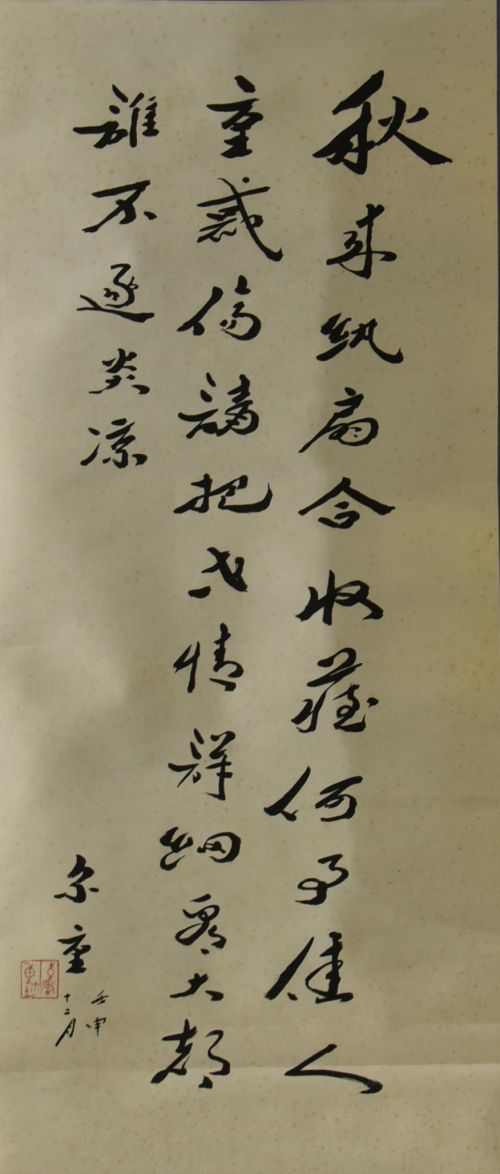 秋来紈扇合收藏何事佳人
重感傷請把世情詳細看大都
誰不逐炎凉
尔重
壬申
十二月